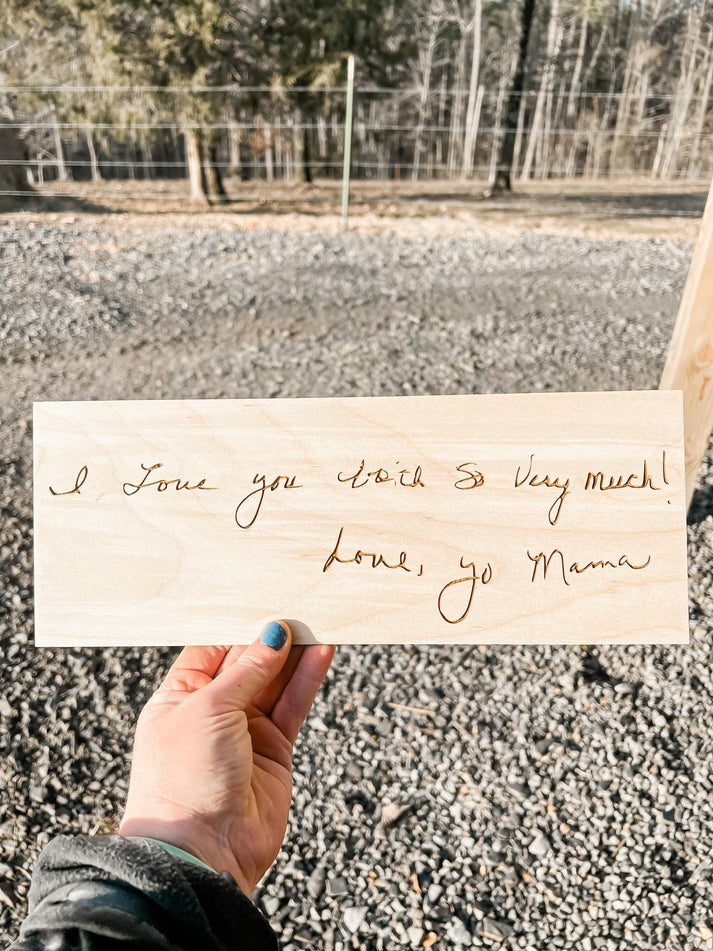 I Love you so Very much!
Love, yo Mama